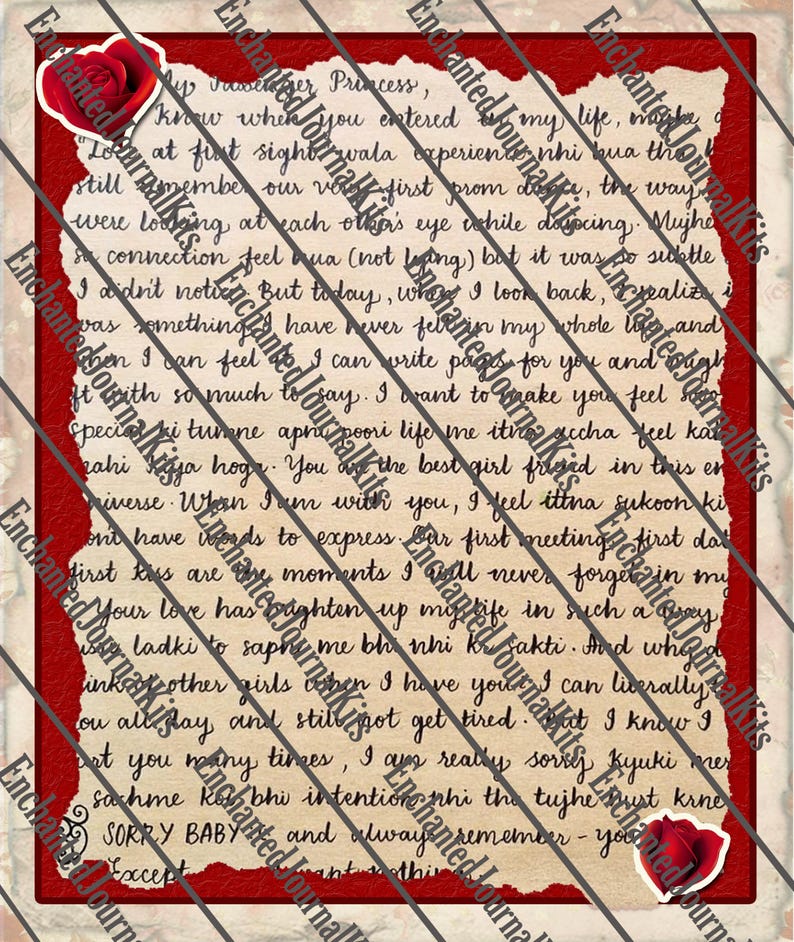 My Passenger Princess,
know when you entered in my life, maybe
"Love at first sight" wala experience nhi hua tha
still remember our very first prom dance, the way
were looking at each other's eye while dancing. Mujhe
connection feel hua (not lying) but it was so subtle
I didn't notice. But today, when I look back, I realize
was something I have never felt in my whole life and
I can feel it. I can write pages for you and
with so much to say. I want to make you feel
special ki tumne apni poori life me itna accha feel
nahi kiya hoga. You are the best girl friend in this
universe. When I am with you, I feel ittna sukoon ki
have words to express. Our first meeting, first
first kiss are the moments I will never forget in my
Your love has brighten up my life in such a way
ladki to sapne me bhi nhi kr sakti. And why
of other girls when I have you. I can literally
you all day and still not get tired. But I know I
you many times, I am really sorry kyuki
sachme koi bhi intention nhi tha tujhe hurt krne
SORRY BABY and always remember - you
Except want nothing
EnchantedJournalKits
EnchantedJournalKits
EnchantedJournalKits
EnchantedJournalKits
EnchantedJournalKits
EnchantedJournalKits
EnchantedJournalKits
EnchantedJournalKits
EnchantedJournalKits
EnchantedJournalKits
EnchantedJournalKits
EnchantedJournalKits